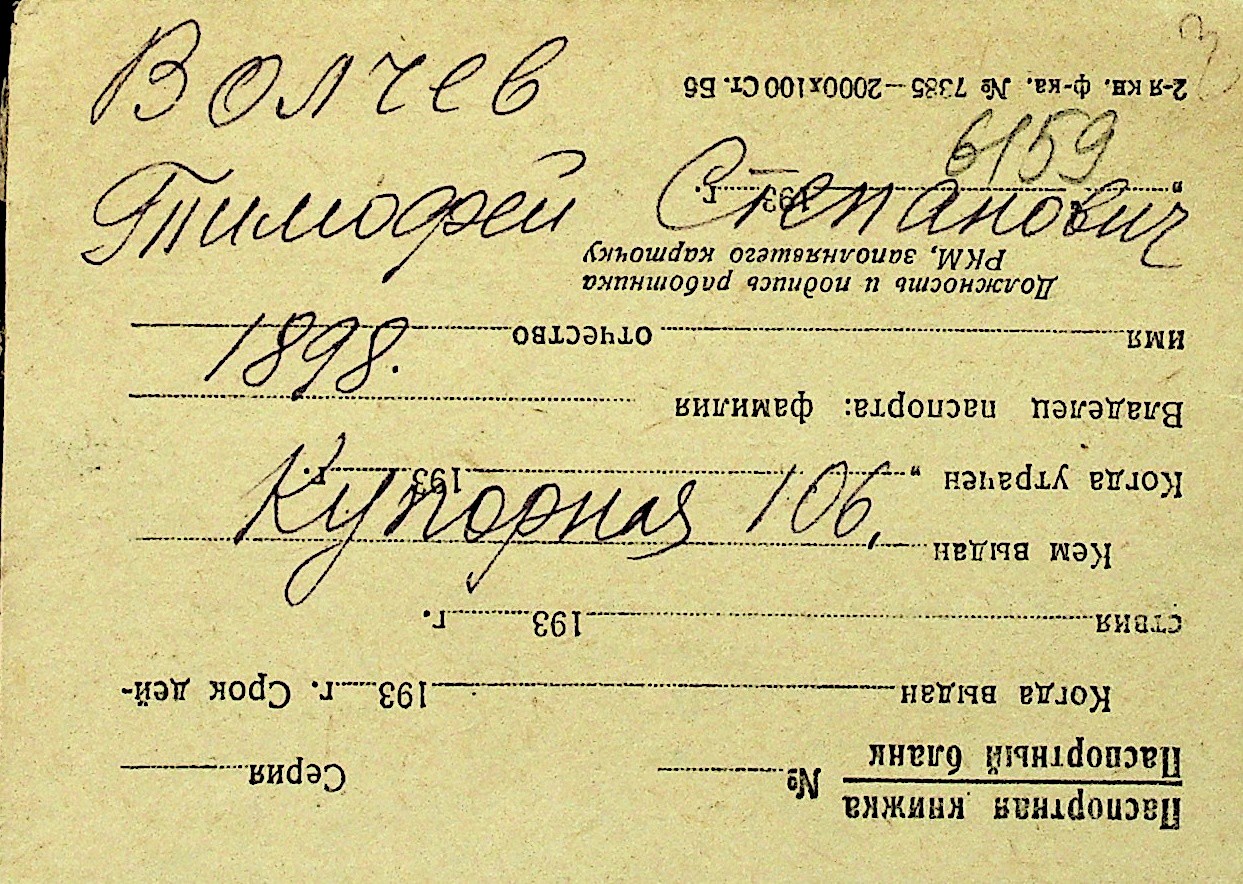 Волчев
Тимофей Степанович
1898.
Купорная 106,
6159
Паспортная книжка
Паспортный бланк
№ Серия
Когда выдан 193 г. Срок дей-
ствия 193 г.
Кем выдан
Когда утрачен „ 193 г.
Владелец паспорта: фамилия
имя отчество
Должность и подпись работника
РКМ, заполнявшего карточку
„ “ 193 г.
2-я кн. ф-ка. № 7385—2000х100 Ст. Б5